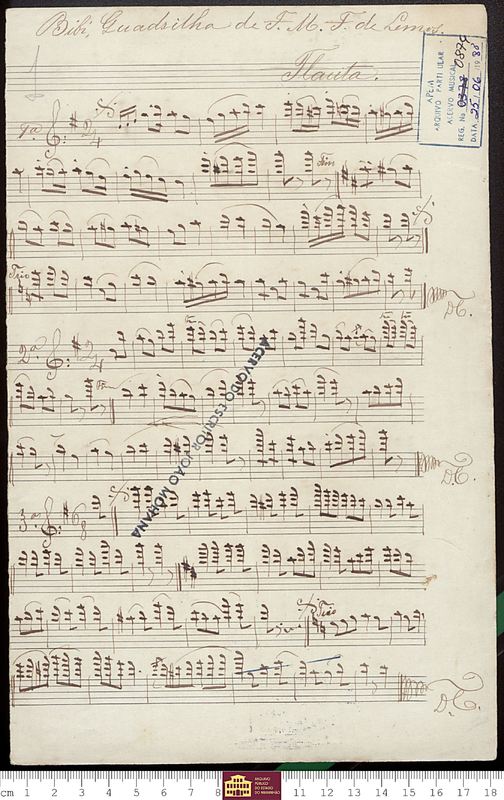 Bibi, Quadrilha de F. M. F. de Lemos.
Flauta.
APEM
ARQUIVO PARTICULAR
ACERVO MUSICAL
REG. No 0378 0874
DATA 25.06.1980
1ª 2/4
Fim
Trio
D.C.
2ª 2/4
Fim
D.C.
3ª 6/8
Trio
D.C.
ACERVO DO ESCRITOR JOÃO MOHANA
cm 1 2 3 4 5 6 7 8 11 12 13 14 15 16 17 18
ARQUIVO
PÚBLICO
DO ESTADO
DO MARANHÃO